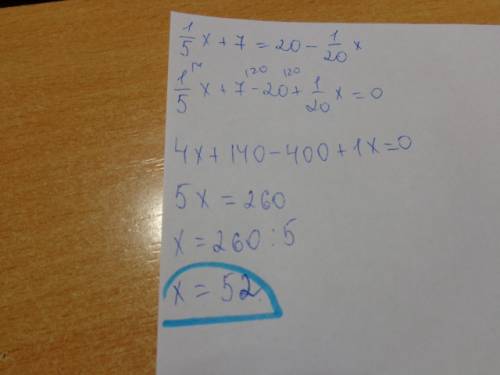 1/5 x + 7 = 20 - 1/20 x
1/5 x + 7 - 20 + 1/20 x = 0
4x + 140 - 400 + 1x = 0
5x = 260
x = 260 : 5
x = 52.